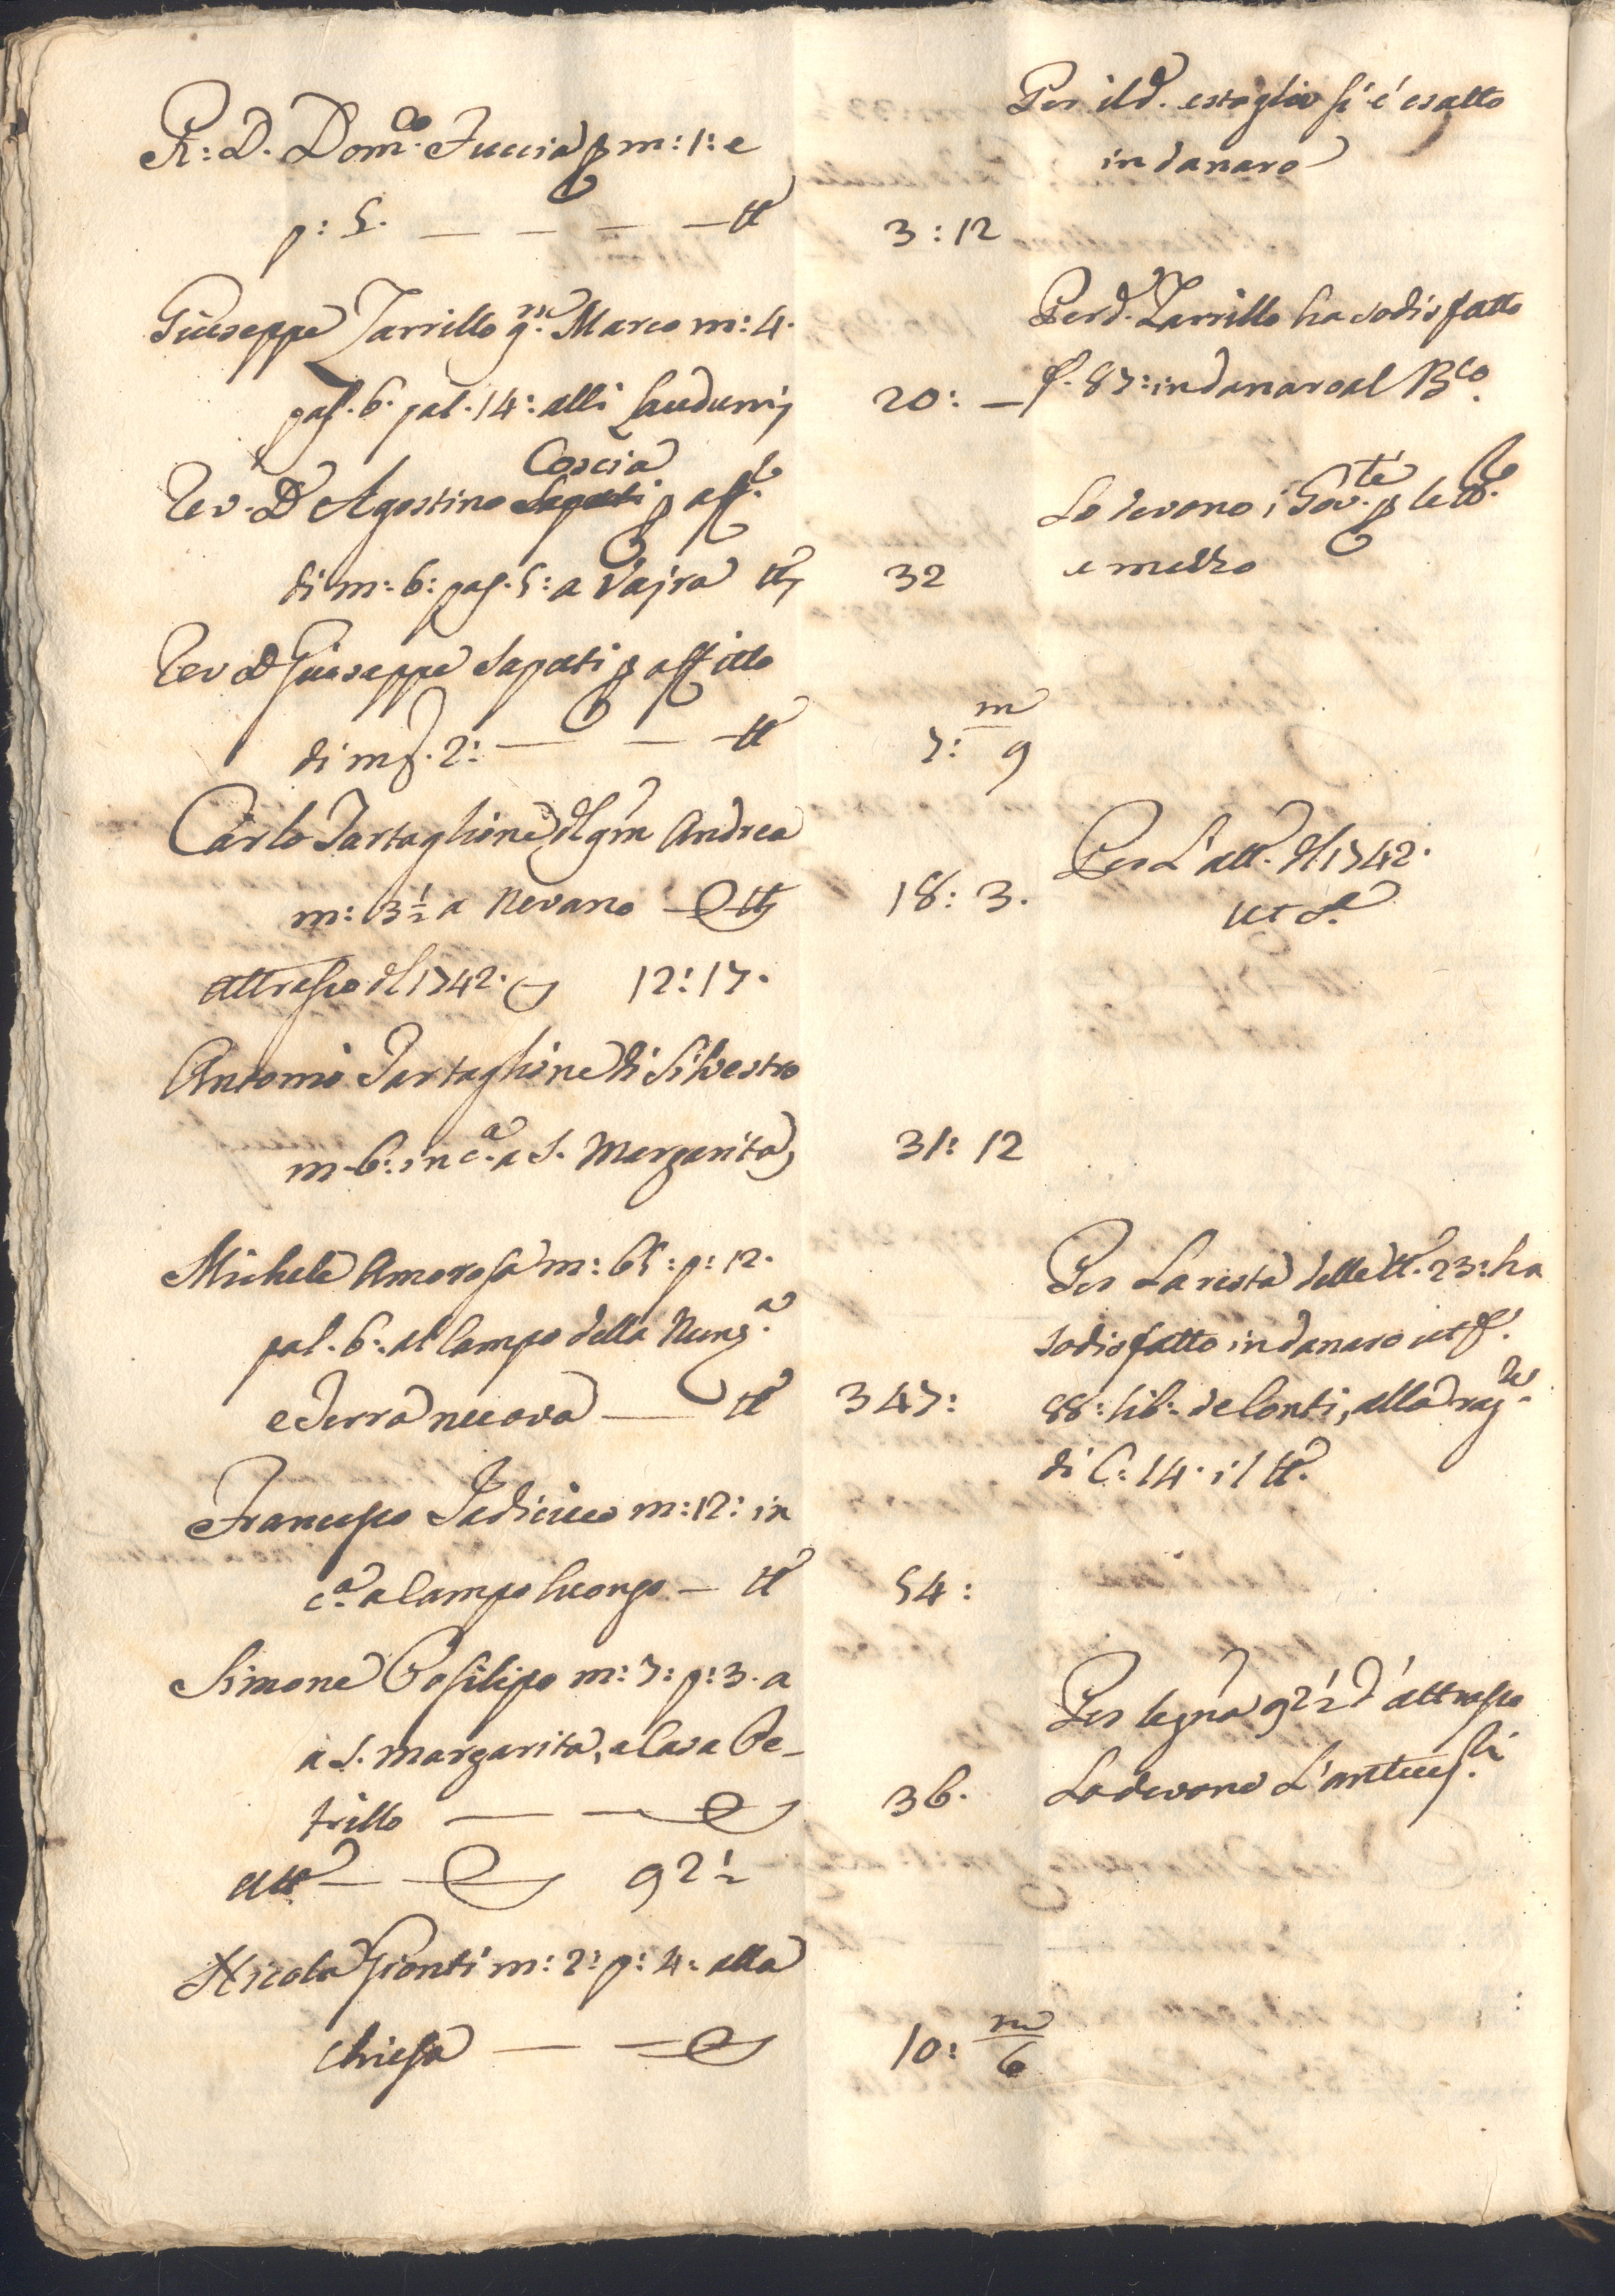 R: D. Dom.co Iuccia p m: 1: e
p: 5. — — — — tt
3 : 12
Per il d. estaglio si è esatto
in danaro
Giuseppe Zarrillo q.m Marco m: 4.
pas. 6. pal. 14: alli
20: —
Per d. Zarrillo ha sodisfatto
f. 87: in danaro al B.co
Rev. D. Agostino Coscia p aff.to
di m: 6: pas. 5: a Vajra tt
32
Lo devono i Gov.
e mezzo
Rev. D. Giuseppe Sapatti p affitto
di m. 2: — — tt
7: m/9
Carlo Tartaglione del qm Andrea
m: 3 1/2 a Nevano — tt
18: 3.
Per l'att. del 1742.
ut s.a
attrasso del 1742. 12: 17.
Antonio Tartaglione di Silvestro
m. 6: in c.a a S. Margarita
31: 12
Michele Amorosa m: 65: p: 12.
pal. 6: al Campo della Nunz.a
e Terra nuova — tt
347:
Per la resta delle tt. 23: ha
sodisfatto in danaro ut f.
88: lib. de Conti, alla rag.
di C: 14. il tt.
Francesco Iadicicco m: 12: in
c.a a Campo luongo — tt
54:
Simone Posilipo m: 7: p: 3. a
a S. Margarita, a Casa Pe-
trillo — —
36.
Per legna 92 1/2 d'attrasso
La devono l'
att. — — 92 1/2
Nicola Gionti m: 2: p: 4: alla
Chiesa — —
10: m/6